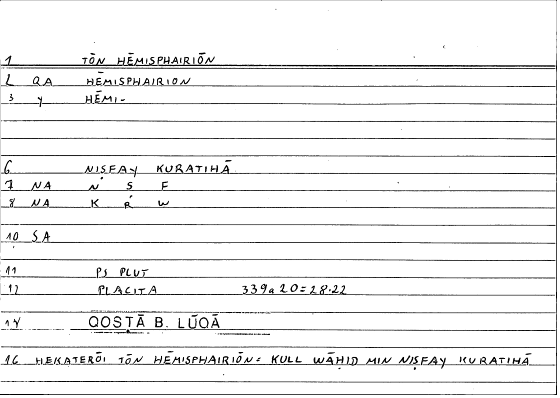 1 TŌN HĒMISPHAIRIŌN
2 QA HĒMISPHAIRION
3 Y HĒMI-
6 NIṢFAY KURATIHĀ
7 NA N Ṣ F
8 NA K R W
10 SA
11 PS PLUT
12 PLACITA 339a20=28.22
14 QOSṬĀ B. LŪQĀ
16 HEKATERŌI TŌN HĒMISPHAIRIŌN= KULL WĀḤID MIN NIṢFAY KURATIHĀ